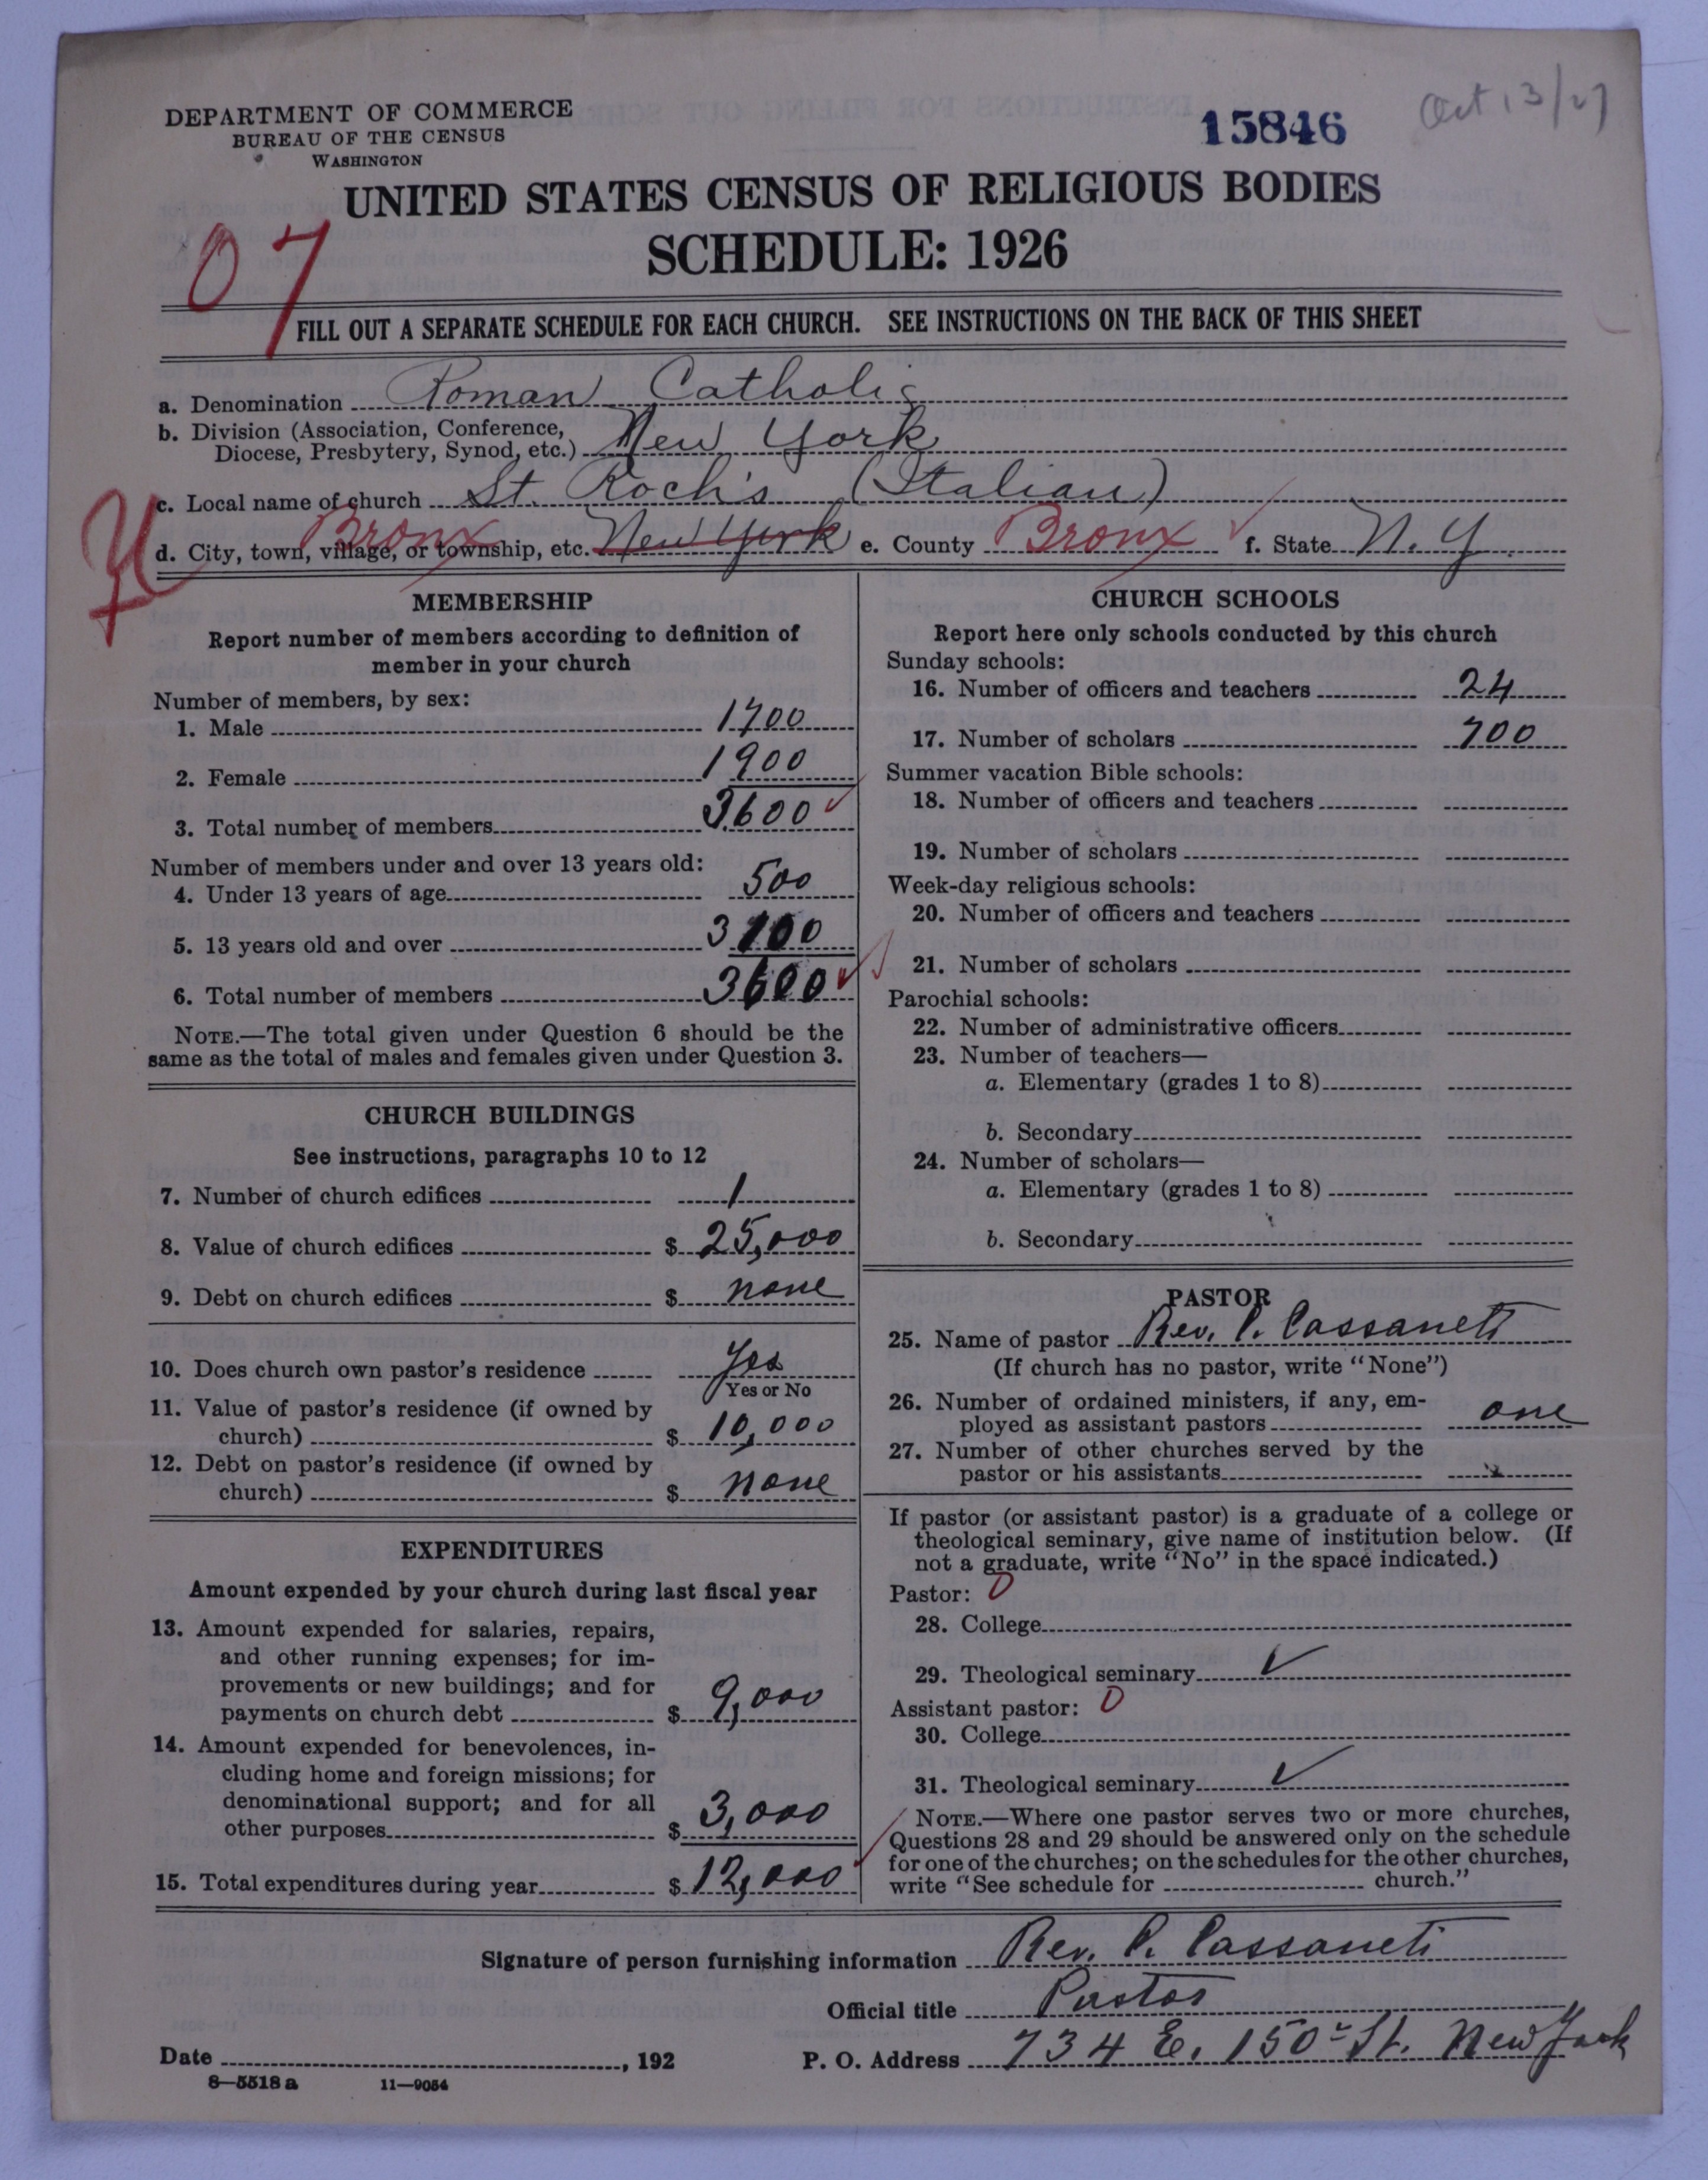 DEPARTMENT OF COMMERCE
BUREAU OF THE CENSUS
WASHINGTON
15846
Oct 13/27
UNITED STATES CENSUS OF RELIGIOUS BODIES
SCHEDULE: 1926
07
FILL OUT A SEPARATE SCHEDULE FOR EACH CHURCH. SEE INSTRUCTIONS ON THE BACK OF THIS SHEET
a. Denomination Roman Catholic
b. Division (Association, Conference,
Diocese, Presbytery, Synod, etc.) New York
c. Local name of church St. Roch's (Italian)
d. City, town, village, or township, etc. Bronx New York e. County Bronx f. State N. Y.
MEMBERSHIP
Report number of members according to definition of
member in your church
Number of members, by sex:
1. Male 1700
2. Female 1900
3. Total number of members 3600
Number of members under and over 13 years old:
4. Under 13 years of age 500
5. 13 years old and over 3100
6. Total number of members 3600
NOTE.—The total given under Question 6 should be the
same as the total of males and females given under Question 3.
CHURCH BUILDINGS
See instructions, paragraphs 10 to 12
7. Number of church edifices 1
8. Value of church edifices $ 25,000
9. Debt on church edifices $ none
10. Does church own pastor's residence Yes
Yes or No
11. Value of pastor's residence (if owned by
church) $ 10,000
12. Debt on pastor's residence (if owned by
church) $ none
EXPENDITURES
Amount expended by your church during last fiscal year
13. Amount expended for salaries, repairs,
and other running expenses; for im-
provements or new buildings; and for
payments on church debt $ 9,000
14. Amount expended for benevolences, in-
cluding home and foreign missions; for
denominational support; and for all
other purposes $ 3,000
15. Total expenditures during year $ 12,000
CHURCH SCHOOLS
Report here only schools conducted by this church
Sunday schools:
16. Number of officers and teachers 24
17. Number of scholars 700
Summer vacation Bible schools:
18. Number of officers and teachers
19. Number of scholars
Week-day religious schools:
20. Number of officers and teachers
21. Number of scholars
Parochial schools:
22. Number of administrative officers
23. Number of teachers—
a. Elementary (grades 1 to 8)
b. Secondary
24. Number of scholars—
a. Elementary (grades 1 to 8)
b. Secondary
PASTOR
25. Name of pastor Rev. P. Cassaneti
(If church has no pastor, write "None")
26. Number of ordained ministers, if any, em-
ployed as assistant pastors one
27. Number of other churches served by the
pastor or his assistants
If pastor (or assistant pastor) is a graduate of a college or
theological seminary, give name of institution below. (If
not a graduate, write "No" in the space indicated.)
Pastor: 0
28. College
29. Theological seminary ✓
Assistant pastor: 0
30. College
31. Theological seminary ✓
NOTE.—Where one pastor serves two or more churches,
Questions 28 and 29 should be answered only on the schedule
for one of the churches; on the schedules for the other churches,
write "See schedule for church."
Signature of person furnishing information Rev. P. Cassaneti
Official title Pastor
Date , 192 P. O. Address 734 E. 150 St. New York
8—5518 a 11—9054